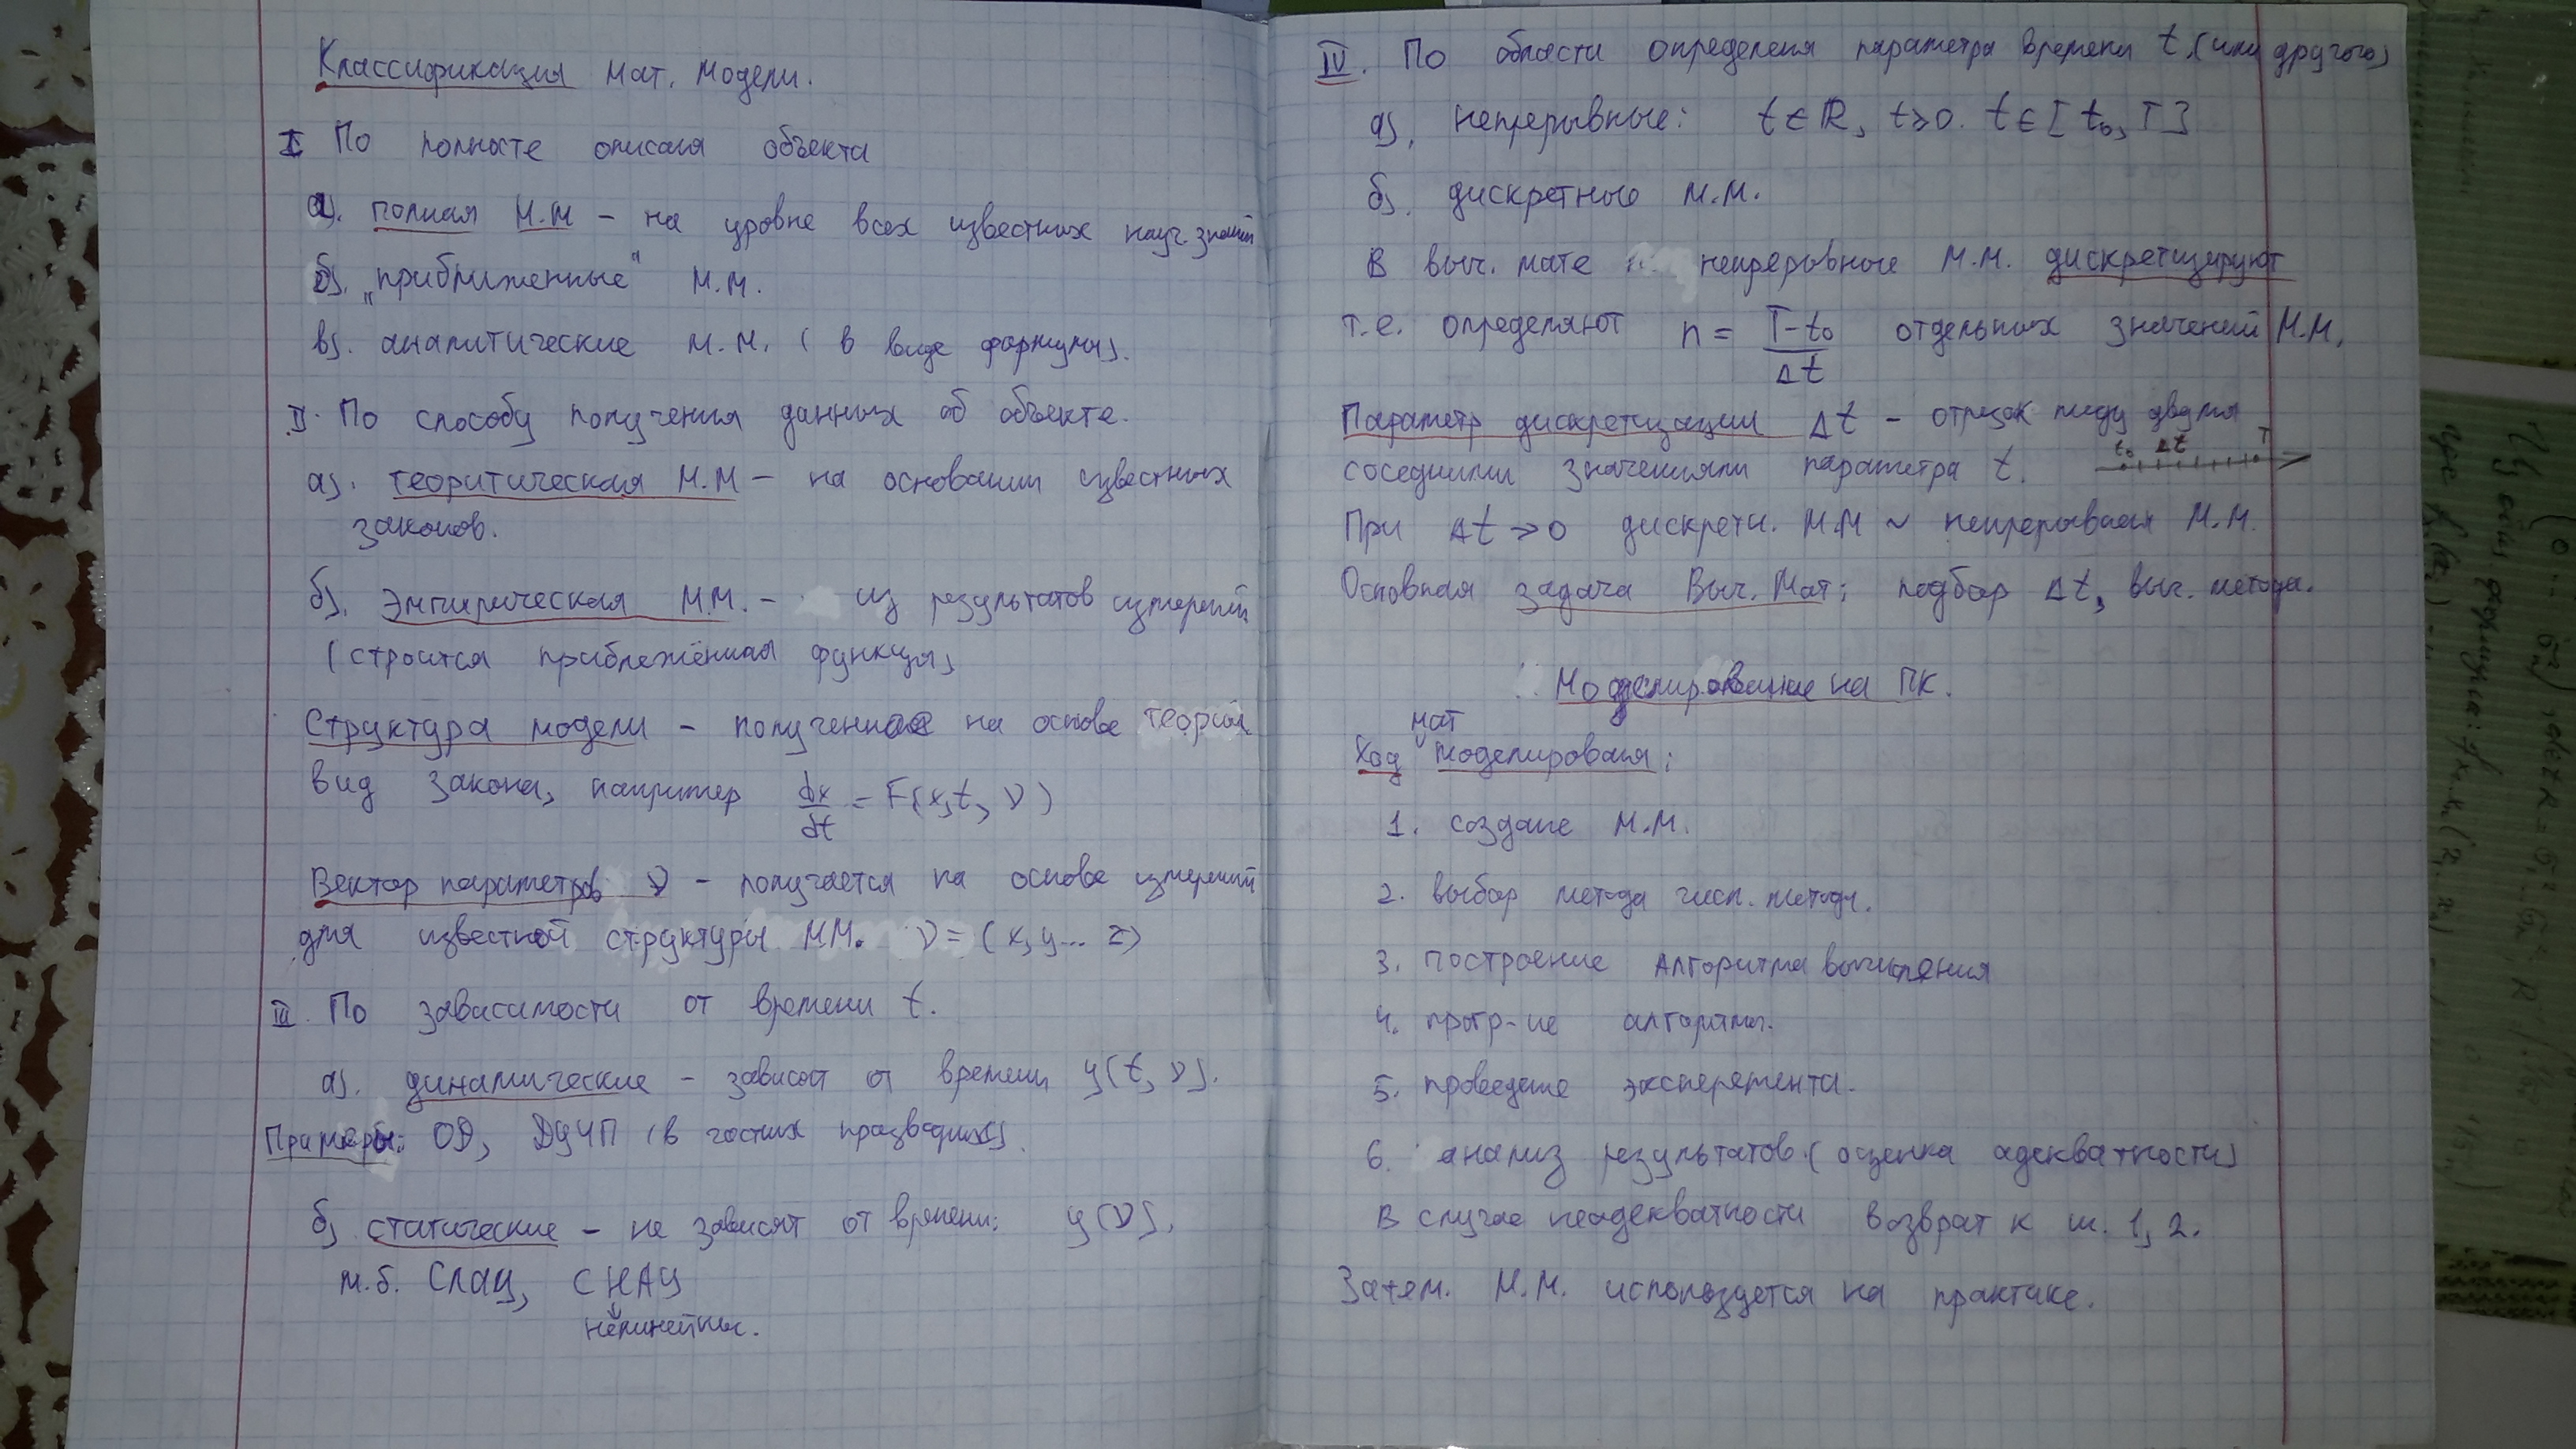 Классификация мат. модели.
I По полноте описания объекта
а). полная М.М – на уровне всех известных науч. знаний
б). „приближенные" М.М.
в). аналитические М.М. (в виде формулы).
II. По способу получения данных об объекте.
а). теоритическая М.М – на основании известных
законов.
б). Эмпирическая М.М. – из результатов измерений
(строится приближённая функция)
Структура модели – полученное на основе теории
вид закона, например dx/dt = F(x,t, ν)
Вектор параметров ν – получается на основе измерений
для известной структуры ММ. ν = (x, y... z)
III. По зависимости от времени t.
а). динамические – зависят от времени y(t, ν).
Примеры: ОД, ДУЧП (в частных производных).
б) статические – не зависят от времени: y(ν).
м.б. СЛАУ, СНАУ
нелинейных.
IV. По области определения параметра времени t (или другого)
а). непрерывные: t ∈ R, t≥0. t ∈ [t₀, T]
б). дискретные М.М.
В выч. мате непрерывные М.М. дискретизируют
т.е. определяют n = T-t₀/Δt отдельных значений М.М.
Параметр дискретизации Δt – отрезок между двумя
соседними значениями параметра t.
t₀ Δt T
При Δt → 0 дискретн. М.М ~ непрерывная М.М.
Основная задача Выч. Мат: подбор Δt, выч. метода.
Моделирование на ПК.
мат
Ход моделирования:
1. создание М.М.
2. выбор метода числ. методы.
3. построение Алгоритма вычисления
4. прогр-ие алгоритма.
5. проведение эксперемента.
6. анализ результатов (оценка адекватности)
В случае неадекватности возврат к ш. 1, 2.
Затем. М.М. используется на практике.